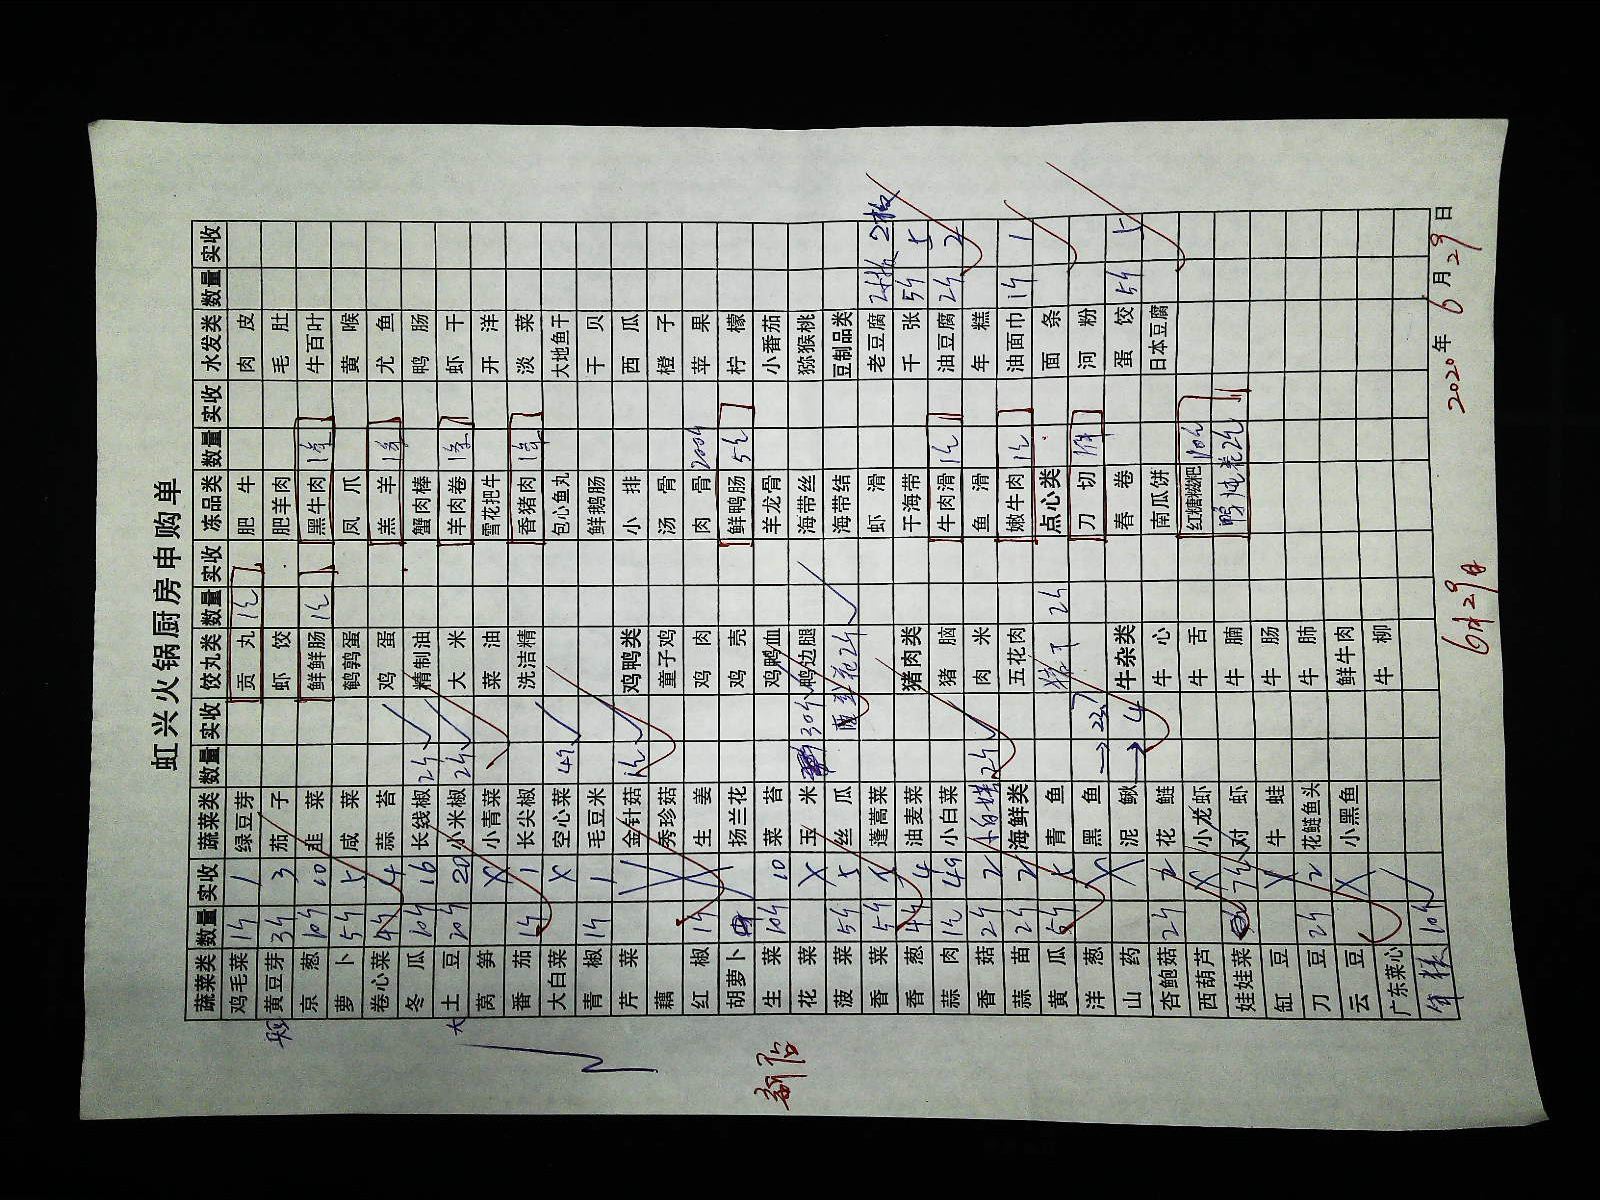 虹兴火锅厨房申购单
蔬菜类 数量 实收 蔬菜类 数量 实收 饺丸类 数量 实收 冻品类 数量 实收 水发类 数量 实收
鸡毛菜 1斤 1 绿豆芽 贡丸 1包 肥牛 肉皮
黄豆芽 3斤 3 茄子 虾饺 肥羊肉 毛肚
京葱 10斤 10 韭菜 鲜鲜肠 1包 黑牛肉 1条 牛百叶
萝卜 5斤 5 咸菜 鹌鹑蛋 凤爪 黄喉
卷心菜 4斤 4 蒜苔 鸡蛋 羔羊 1条 尤鱼
冬瓜 10斤 16 长线椒 2斤 精制油 蟹肉棒 鸭肠
大土豆 20斤 20 小米椒 2斤 大米 羊肉卷 1条 虾干
莴笋 X 小青菜 菜油 雪花把牛 开洋
番茄 1斤 1 长尖椒 洗洁精 香猪肉 1条 淡菜
大白菜 X 空心菜 4斤 包心鱼丸 大地鱼干
青椒 1斤 1 毛豆米 鲜鹅肠 干贝
芹菜 金针菇 1包 鸡鸭类 小排 西瓜
藕 秀珍菇 童子鸡 汤骨 橙子
红椒 1斤 生姜 鸡肉 肉骨 200斤 苹果
胡萝卜 扬兰花 鸡壳 鲜鸭肠 5包 柠檬
生菜 10斤 10 菜苔 鸡鸭血 羊龙骨 小番茄
花菜 X 玉米 30个 鸭边腿 海带丝 猕猴桃
菠菜 5斤 5 丝瓜 西兰花2斤 海带结 豆制品类
香菜 5斤 蓬蒿菜 虾滑 老豆腐 2板 2板
香葱 4斤 4 油麦菜 猪肉类 干海带 千张 5斤 5
蒜肉 1包 49 小白菜 猪脑 牛肉滑 1包 油豆腐 2斤 2
香菇 2斤 2 2斤 肉米 鱼滑 年糕
蒜苗 2斤 2 海鲜类 五花肉 嫩牛肉 1包 油面巾 1斤 1
黄瓜 5斤 5 青鱼 2斤 点心类 面条
洋葱 X 黑鱼 →227 刀切 1件 河粉
山药 X 泥鳅 → 4 牛杂类 春卷 蛋饺 5斤 5
杏鲍菇 2斤 2 花鲢 牛心 南瓜饼 日本豆腐
西葫芦 X 小龙虾 牛舌 红糖糍粑 10包
娃娃菜 对虾 牛腩 鸭炖花2包
缸豆 X 牛蛙 牛肠
刀豆 2斤 2 花鲢鱼头 牛肺
云豆 X 小黑鱼 鲜牛肉
广东菜心 牛柳
年糕 10斤
2020年6月29日
6月29日